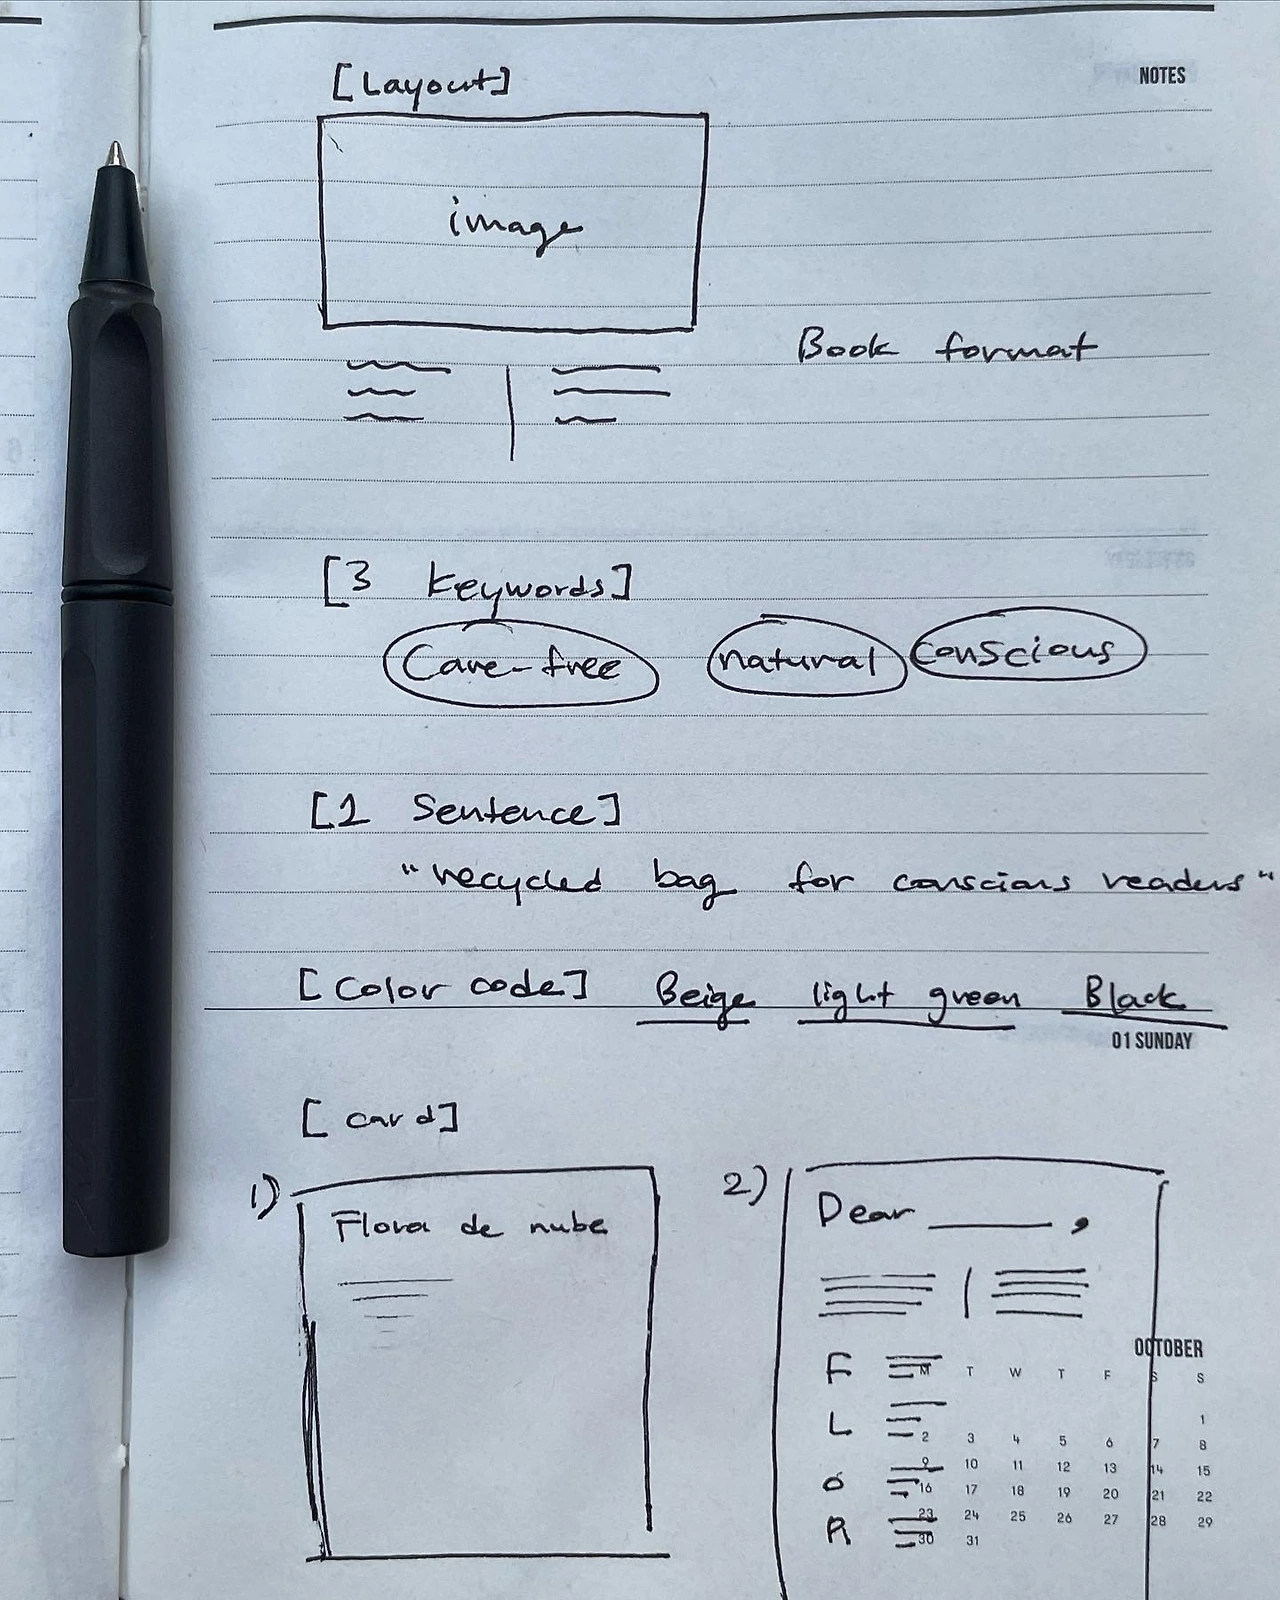 NOTES
[Layout]
image
Book format
[3 keywords]
Care-free natural conscious
[1 Sentence]
"recycled bag for conscious readers"
[Color code] Beige light green Black
01 SUNDAY
[card]
1)
Flora de nube
2)
Dear ______ ,
F
L
O
R
OCTOBER
M T W T F S S
1
2 3 4 5 6 7 8
9 10 11 12 13 14 15
16 17 18 19 20 21 22
23 24 25 26 27 28 29
30 31